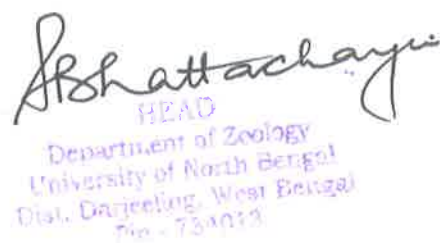 SBhattacharya
HEAD
Department of Zoology
University of North Bengal
Dist. Darjeeling, West Bengal
Pin - 734013